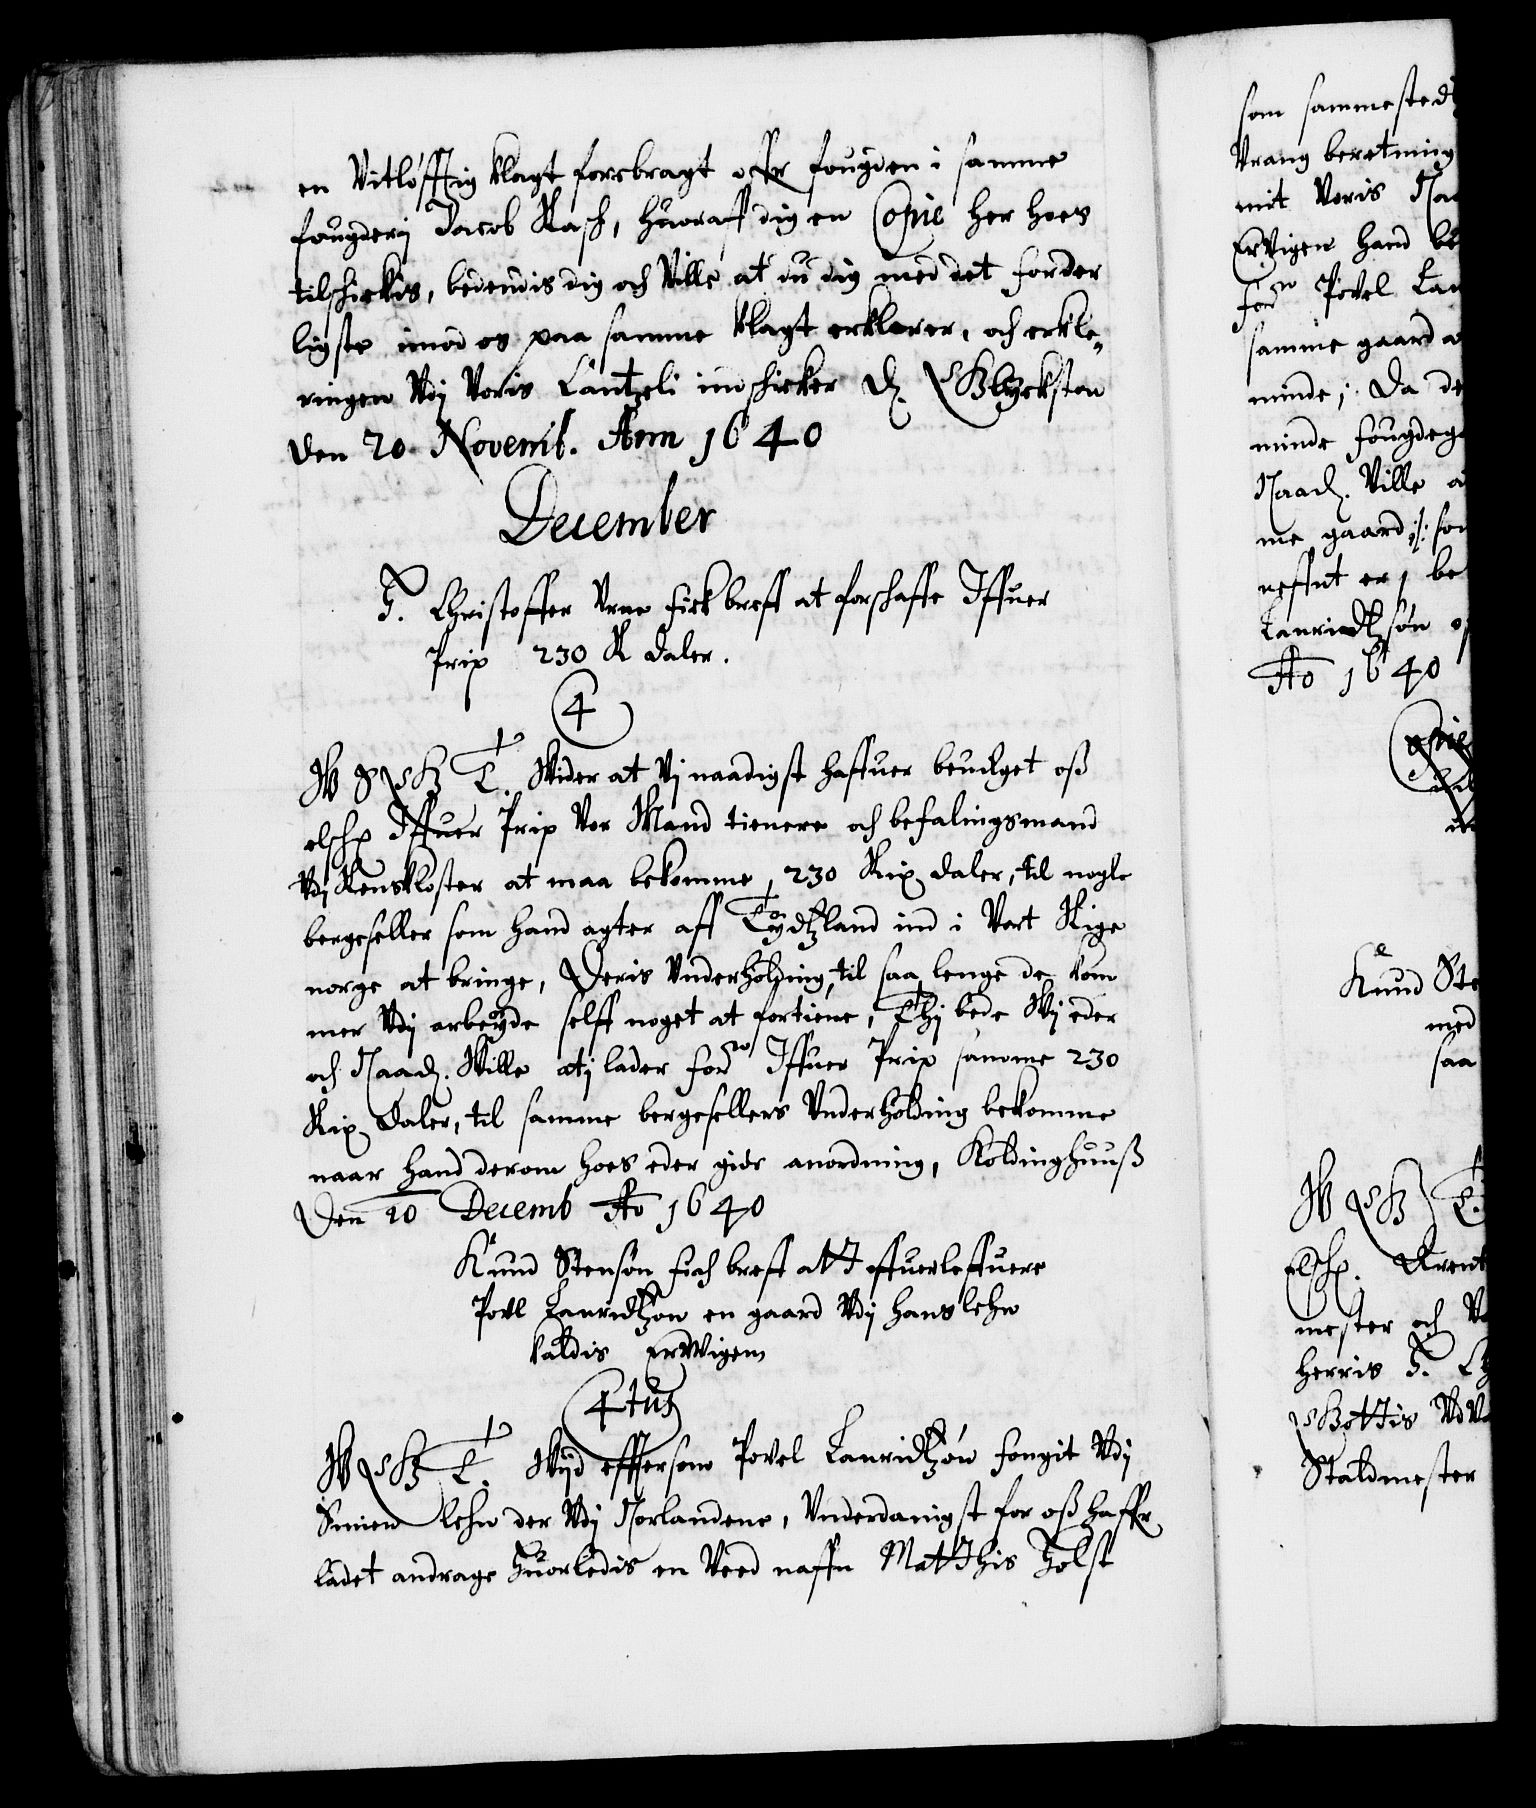 en Vitløfftig klagt forebragt offr fougden i samme
fougderj Jacob Rasch, huoraff dig en Copie her hoes
tilschickis, bedendis dig och Ville at du dig med det forder
ligste imod os paa samme klagt erklerer, och erkle„
ringen Vdj Voris Cantzeli indschicker D. Glyckstan
Den 20 Novemb. Ann 1640
December
H. Christoffer Vrne fick breff at forschaffe Iffuer
Prip 230 R daler.
4
W G T. Wider at Vj naadigst haffuer beuilget oß
elsch Iffuer Prip Vor Mand tienere och befalingsmand
Vdj Renskloster at maa bekomme, 230 Rix daler, til nogle
bergeseller som hand agter aff Tydtzland ind i Vort Rige
norge at bringe, Deris Vnderholding, til saa lenge de kom
mer Vdj arbeyde selff noget at fortiene, Thj bede Wj eder
och Naad. Wille atj lader for Iffuer Prip samme 230
Rix Daler, til samme bergesellers Vnderholding bekomme
naar hand derom hoes eder giør anordning, Koldinghuuß
Den 20 Decemb Ao 1640
Knud Stensøn fich breff att I effuerleffuere
Povl Lauridtzøn en gaard Vdj hans lehn
kaldis Erwigen
4tus
W G T. Wijd effttersom Povel Lauridtzøn fougit Vdj
lehn der Vdj Norlandene, Vnderdanigst for oß haffr
ladet andrage huorledis en Veed naffn Matthis Holst
som sammested
Vrang beretning
mit Voris
Erwigen hand be
for Povel Lau
samme gaard
minde; Da de
minde fougdeg
Naad. Ville a
me gaard som
neffnt er, be
Lauridtzsøn
Ao 1640
Copie
Knud Ste
med
saa
W G T.
Elsch.
mester och
herris H.
Staldmester